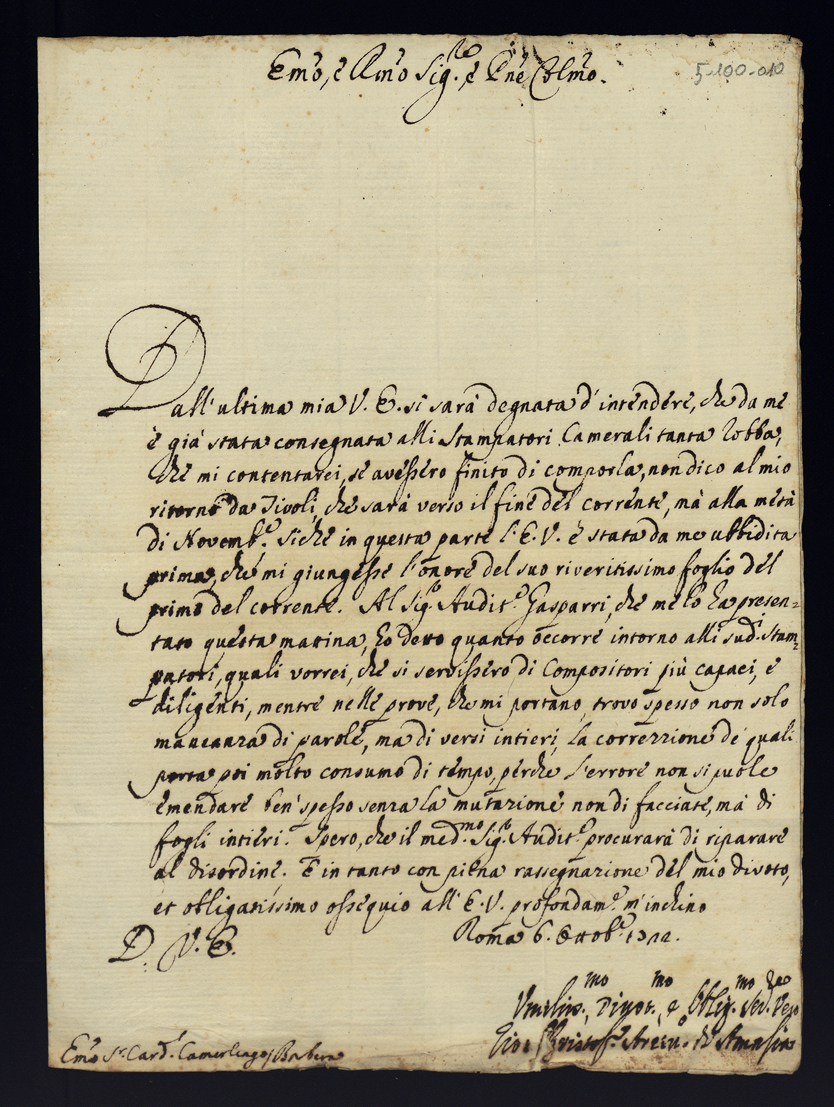 Em̃o, e Rm̃o Sig.re, e Pñe Colm̃o.
5-100-010
Dall'ultima mia V. E. si sarà degnata d'intendere, che da me
è già stata consegnata alli Stampatori Camerali tanta robba,
che mi contentarei, se avessero finito di comporla, non dico al mio
ritorno da Tivoli, che sarà verso il fine del corrente, mà alla metà
di Novemb.e Siche in questa parte l'E.V. è stata da me ubbidita
prima, che mi giungesse l'onore del suo riveritissimo foglio del
primo del corrente. Al Sig.r Audit.e Gasparri, che me lo ha presen=
tato questa matina, ho detto quanto occorre intorno alli sud.i Stam=
patori, quali vorrei, che si servissero di Compositori più capaci, e
diligenti, mentre nelle prove, che mi portano, trovo spesso non solo
mancanza di parole, ma di versi intieri, la correzzione de quali
porta poi molto consumo di tempo, perche l'errore non si puole
emendare ben spesso senza la mutazione non di facciate, mà di
fogli intieri. Spero, che il med.mo Sig.r Audit.e procurarà di riparare
al disordine. E in tanto con piena rassegnazione del mio divoto,
et obligatissimo ossequio all'E.V. profondam.e m'inchino
D. V. E. Roma 6. Ottob.e
Umiliss.mo, Divot.mo, e Oblig.mo Ser.re
Gio: Christof.o Arciv.o di Amasia
Em̃o S.r Card.l Camerlengo